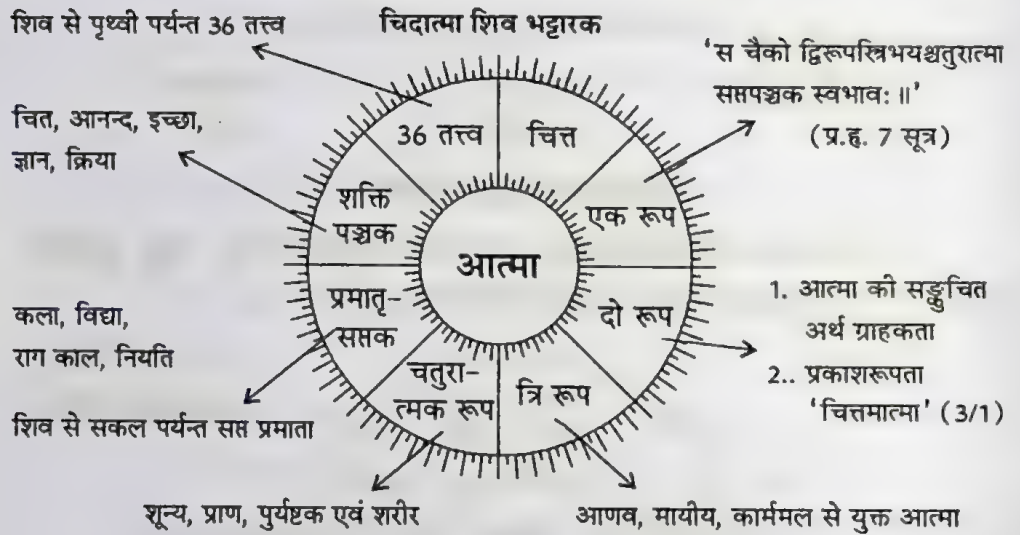 शिव से पृथ्वी पर्यन्त 36 तत्त्व
चिदात्मा शिव भट्टारक
'स चैको द्विरूपस्त्रिभयश्चतुरात्मा
सप्तपञ्चक स्वभावः ॥'
(प्र.हृ. 7 सूत्र)
चित, आनन्द, इच्छा,
ज्ञान, क्रिया
36 तत्त्व
चित्त
शक्ति
पञ्चक
एक रूप
आत्मा
प्रमातृ-
सप्तक
दो रूप
चतुरा-
त्मक रूप
त्रि रूप
कला, विद्या,
राग काल, नियति
शिव से सकल पर्यन्त सप्त प्रमाता
1. आत्मा की सङ्कुचित
अर्थ ग्राहकता
2.. प्रकाशरूपता
'चित्तमात्मा' (3/1)
शून्य, प्राण, पुर्यष्टक एवं शरीर
आणव, मायीय, कार्ममल से युक्त आत्मा